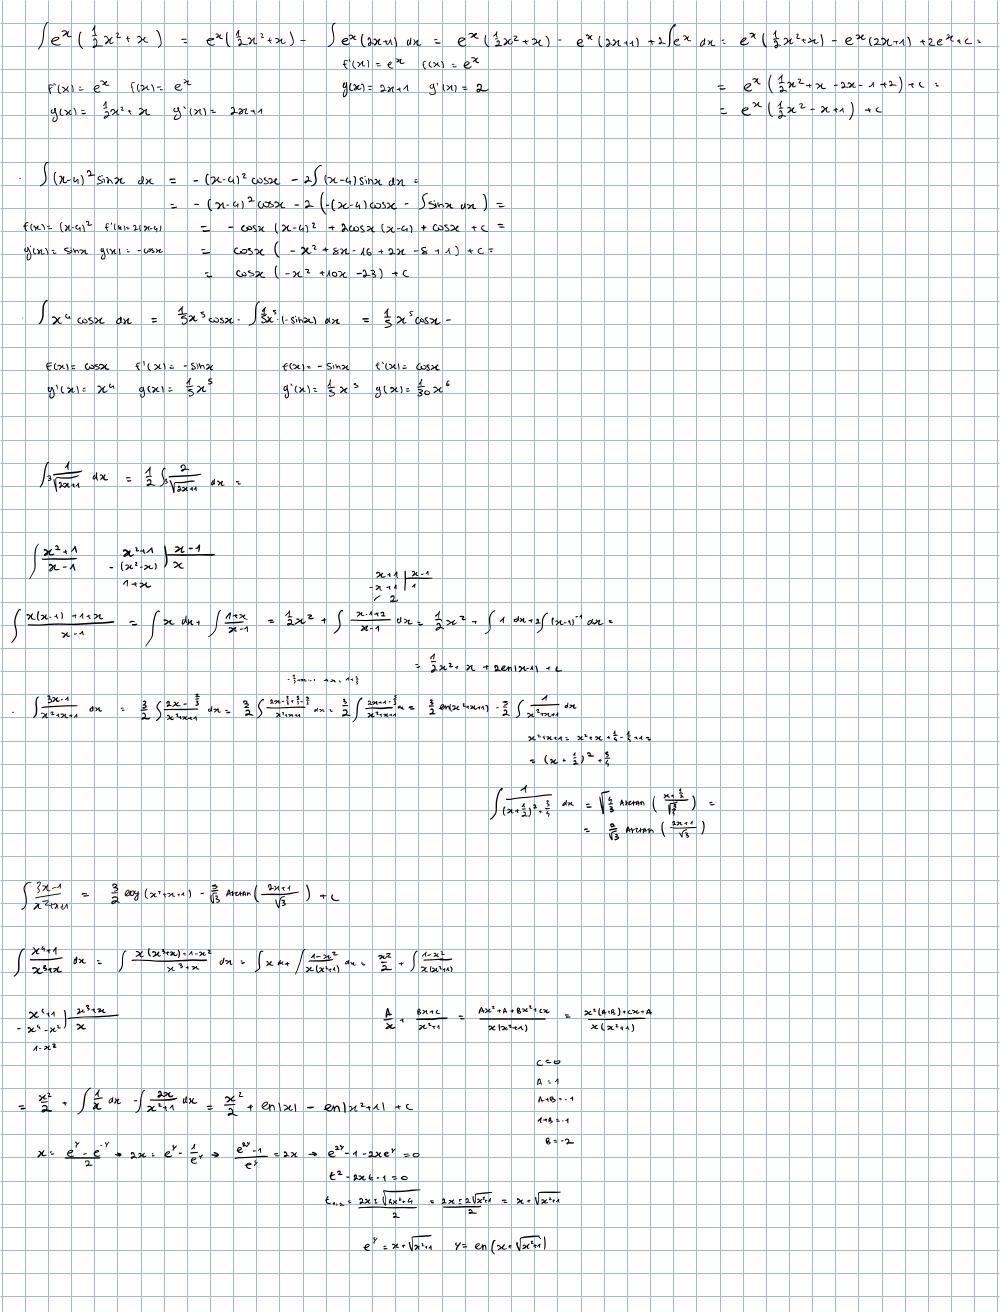 ∫ eˣ(½x²+x) = eˣ(½x²+x) - ∫ eˣ(2x+1) dx = eˣ(½x²+x) - eˣ(2x+1) + 2∫eˣ dx = eˣ(½x²+x) - eˣ(2x+1) + 2eˣ + c =
f'(x) = eˣ f(x) = eˣ
f'(x) = eˣ f(x) = eˣ g(x) = 2x+1 g'(x) = 2 = eˣ(½x²+x-2x-1+2) + c =
g(x) = ½x²+x g'(x) = 2x+1 = eˣ(½x²-x+1) + c
· ∫ (x-4)² sinx dx = -(x-4)² cosx - 2∫(x-4) sinx dx =
= -(x-4)² cosx - 2(-(x-4)cosx - ∫sinx dx) =
f(x) = (x-4)² f'(x) = 2(x-4) = -cosx (x-4)² + 2cosx (x-4) + cosx + c =
g'(x) = sinx g(x) = -cosx = cosx (-x²+8x-16+2x-8+1) + c =
= cosx (-x²+10x-23) + c
· ∫ x⁴ cosx dx = 1/5 x⁵ cosx - ∫ 1/5 x⁵ · (-sinx) dx = 1/5 x⁵ cosx -
f(x) = cosx f'(x) = -sinx f(x) = -sinx f'(x) = cosx
g'(x) = x⁴ g(x) = 1/5 x⁵ g'(x) = 1/5 x⁵ g(x) = 1/30 x⁶
∫ 1/∛(2x+1) dx = ½ ∫ 2/∛(2x+1) dx =
∫ (x²+1)/(x-1) x²+1 | x-1
-(x²-x) x
1+x
x+1 | x-1
-x+1 1
/ 2
∫ (x(x-1)+1+x)/(x-1) = ∫ x dx + ∫ (1+x)/(x-1) = ½x² + ∫ (x-1+2)/(x-1) dx = ½x² + ∫ 1 dx + 2∫(x-1)⁻¹ dx =
= ½x² + x + 2ln|x-1| + c
· ∫ (3x-1)/(x²+x+1) dx = 3/2 ∫ (2x-2/3)/(x²+x+1) dx = 3/2 ∫ dx = 3/2 ∫ dx = 3/2 ln(x²+x+1) - 5/2 ∫ 1/(x²+x+1) dx
x²+x+1 = x²+x+¼-¼+1 =
= (x+½)² + ¾
∫ 1/((x+½)²+¾) dx = √(4/3) arctan ((x+½)/√(3/4)) =
= 2/√3 arctan ((2x+1)/√3)
∫ (3x-1)/(x²+x+1) = 3/2 log(x²+x+1) - 5/√3 arctan((2x+1)/√3) + c
∫ (x⁴+1)/(x³+x) dx = ∫ (x(x³+x)+1-x²)/(x³+x) dx = ∫ x dx + ∫ (1-x²)/(x(x²+1)) dx = x²/2 + ∫ (1-x²)/(x(x²+1))
x⁴+1 | x³+x A/x + (Bx+C)/(x²+1) = (Ax²+A+Bx²+Cx)/(x(x²+1)) = (x²(A+B)+Cx+A)/(x(x²+1))
-x⁴-x² x
1-x²
C=0
A=1
A+B=-1
1+B=-1
B=-2
= x²/2 + ∫ 1/x dx - ∫ 2x/(x²+1) dx = x²/2 + ln|x| - ln|x²+1| + c
x = (eʸ-e⁻ʸ)/2 → 2x = eʸ - 1/eʸ → (e²ʸ-1)/eʸ = 2x → e²ʸ-1-2xeʸ = 0
t²-2xt-1=0
t₁,₂ = (2x±√(4x²+4))/2 = (2x±2√(x²+1))/2 = x+√(x²+1)
eʸ = x+√(x²+1) y = ln(x+√(x²+1))